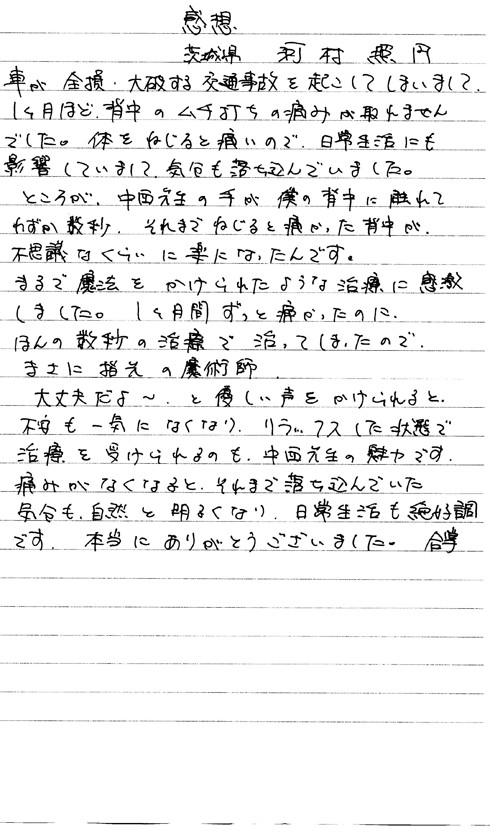 感想
茨城県 利村 照円
車が 全損・大破する 交通事故を 起こして しまいまして、
1ヶ月ほど、背中の ムチ打ちの 痛みが 取れません
でした。体を ねじると 痛いので、日常生活にも
影響していまして、気分も 落ち込んでいました。
ところが、中西先生の 手が 僕の背中に 触れて
わずか 数秒、それまで ねじると 痛かった 背中が、
不思議なくらいに 楽に なったんです。
まるで 魔法を かけられた ような 治療に 感激
しました。1ヶ月間 ずっと 痛かったのに、
ほんの 数秒の 治療で 治ってしまったので、
まさに 指先 の魔術師、
大丈夫だよ〜、と 優しい 声を かけられると、
不安も 一気に なくなり、リラックスした 状態で
治療を 受けられるのも、中西先生の 魅力です。
痛みが なくなると、それまで 落ち込んでいた
気分も、自然と 明るくなり、日常生活も 絶好調
です。 本当に ありがとうございました。 合掌